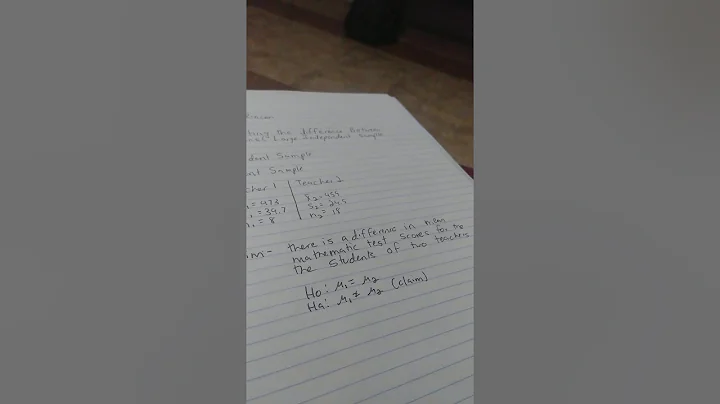 the difference Between
Large Independent Sample
Sample
Sample
Teacher 2
= 473
= 39.7
= 8
x̄₂=455
S₂=24.5
n₂=18
there is a difference in mean
mathematic test scores for the
the students of two teachers
Ho: μ₁= μ₂
Ha: μ₁≠ μ₂ (claim)